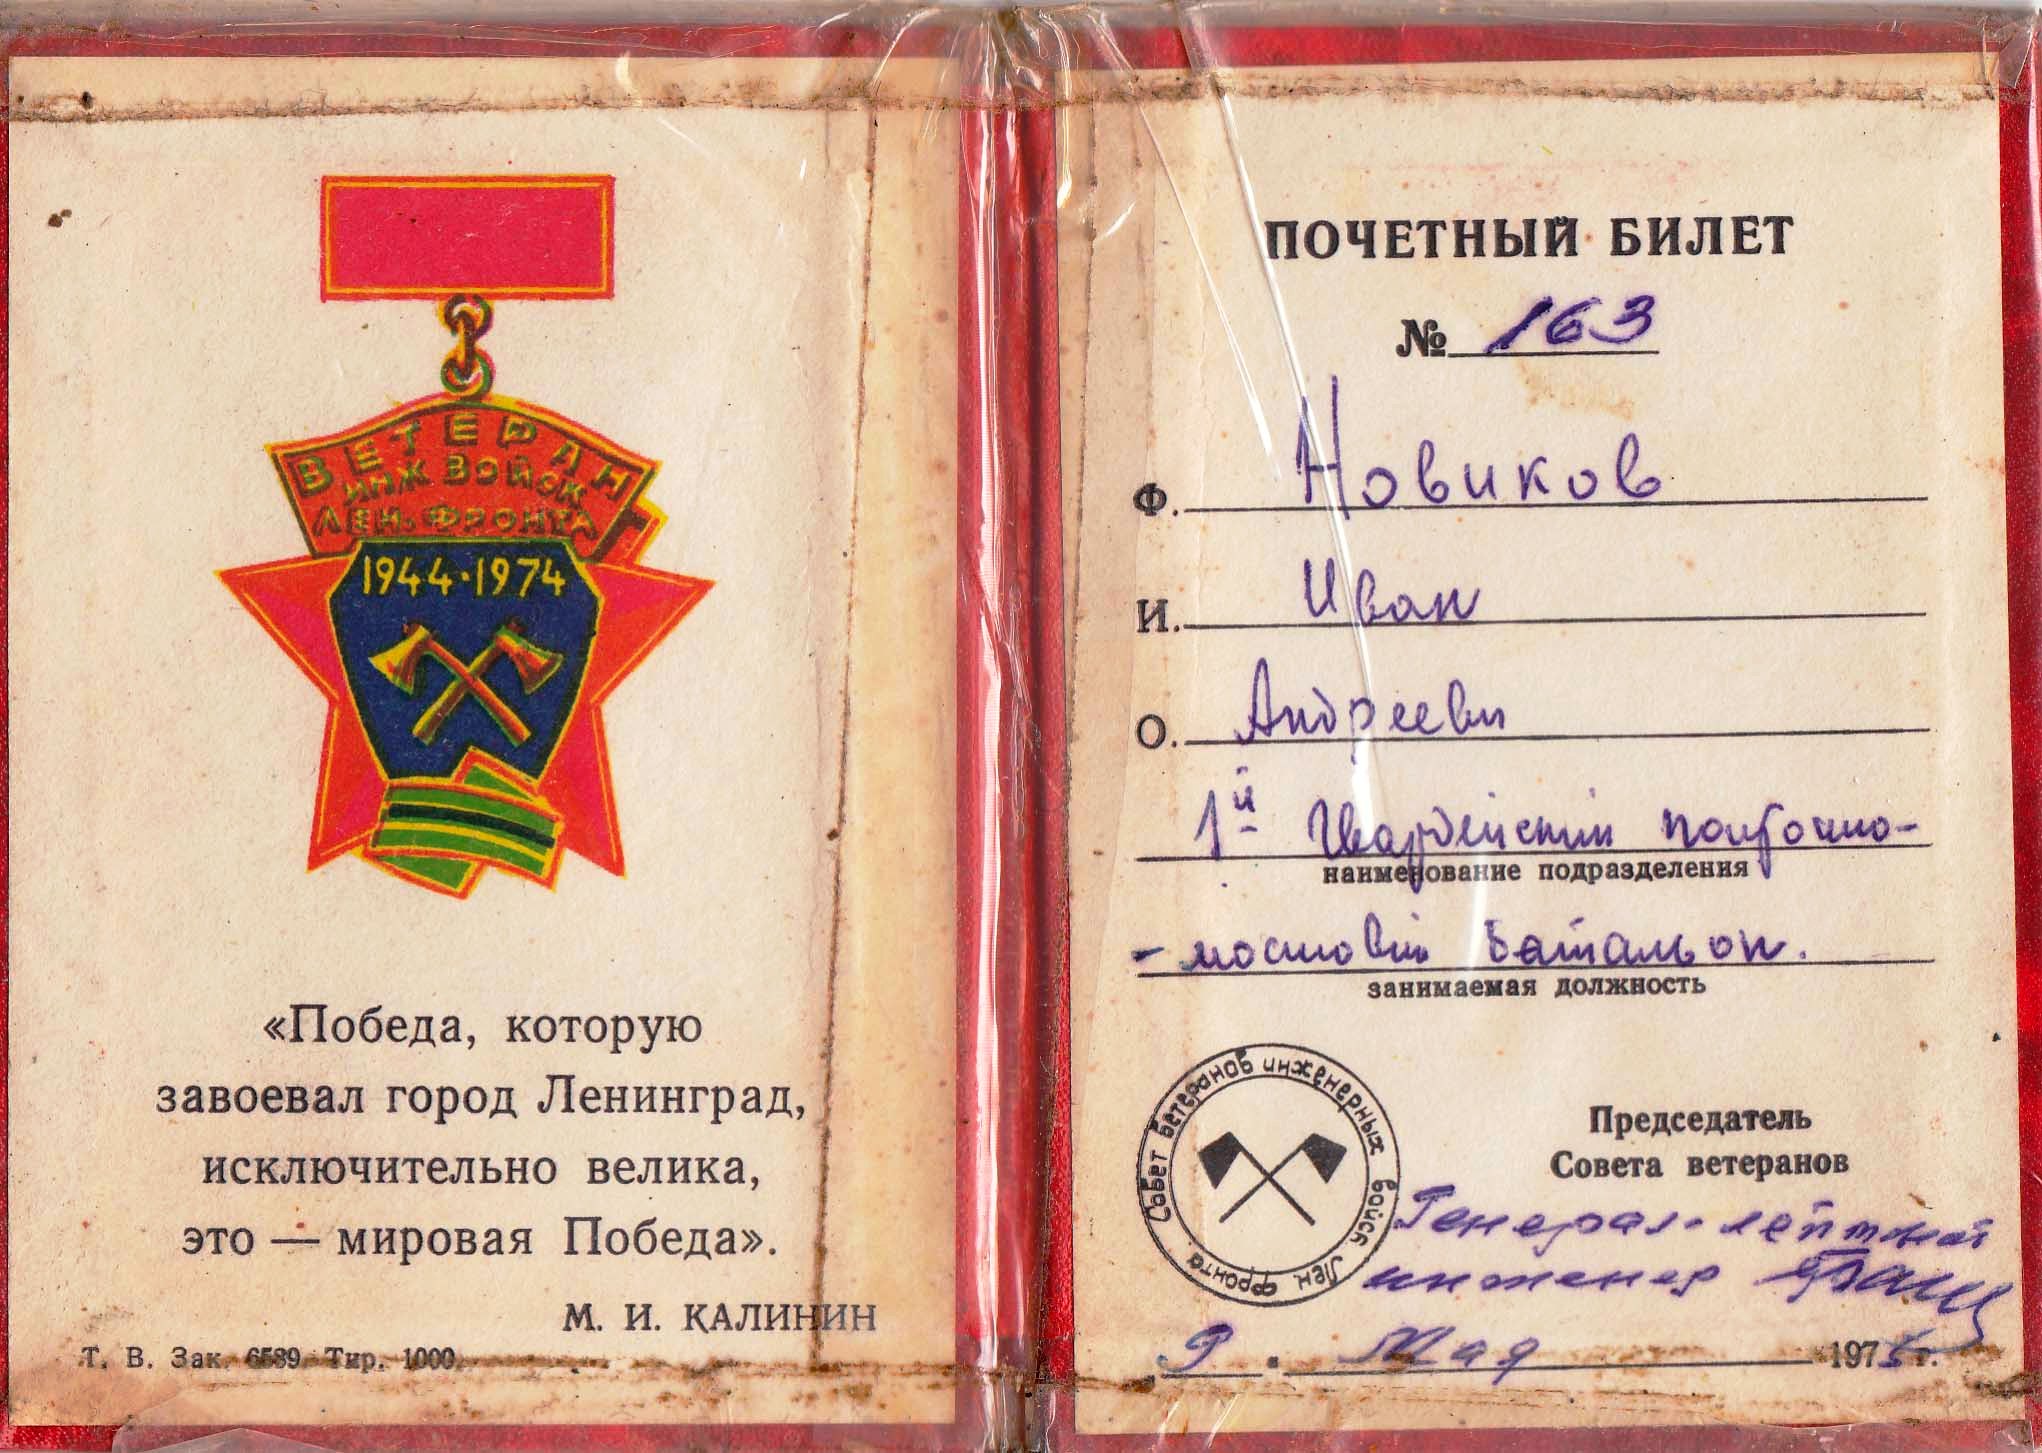 ВЕТЕРАН
ИНЖ ВОЙСК
ЛЕН. ФРОНТА
1944·1974
«Победа, которую
завоевал город Ленинград,
исключительно велика,
это — мировая Победа».
М. И. КАЛИНИН
Т. В. Зак. 6589 Тир. 1000
ПОЧЕТНЫЙ БИЛЕТ
№ 163
Ф. Новиков
И. Иван
О. Андрееви
1й Гвардейский понтонно-
наименование подразделения
- мостовой батальон.
занимаемая должность
Совет ветеранов инженерных войск Лен. фронта
Председатель
Совета ветеранов
Генерал-лейтенант
инженер
9 . Мая 1975 г.